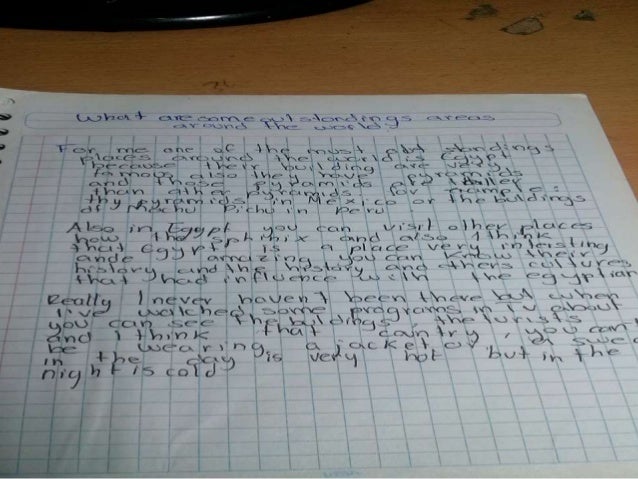 What are some out standings areas
around the world?
For me one of the most out standings
places around the world is Egypt
because their building are
famous also they have pyramids
and those pyramids are
than other pyramids for
thy pyramids in Mexico or the buldings
of Machu Pichu in Peru.
Also in Egypt you can visit other places
how the sphinix and also I think
that egypt is a place very intersting
ande amazing you can know their
history and the history and others cultures
that had influence with the egyptian
Really I never haven't been there but when
I've watched some programs in tv about
you can see the buldings the turists
and I think that caintry, you can't
be wearing a jacket or a swea
in the day is very hot but in the
night is cold